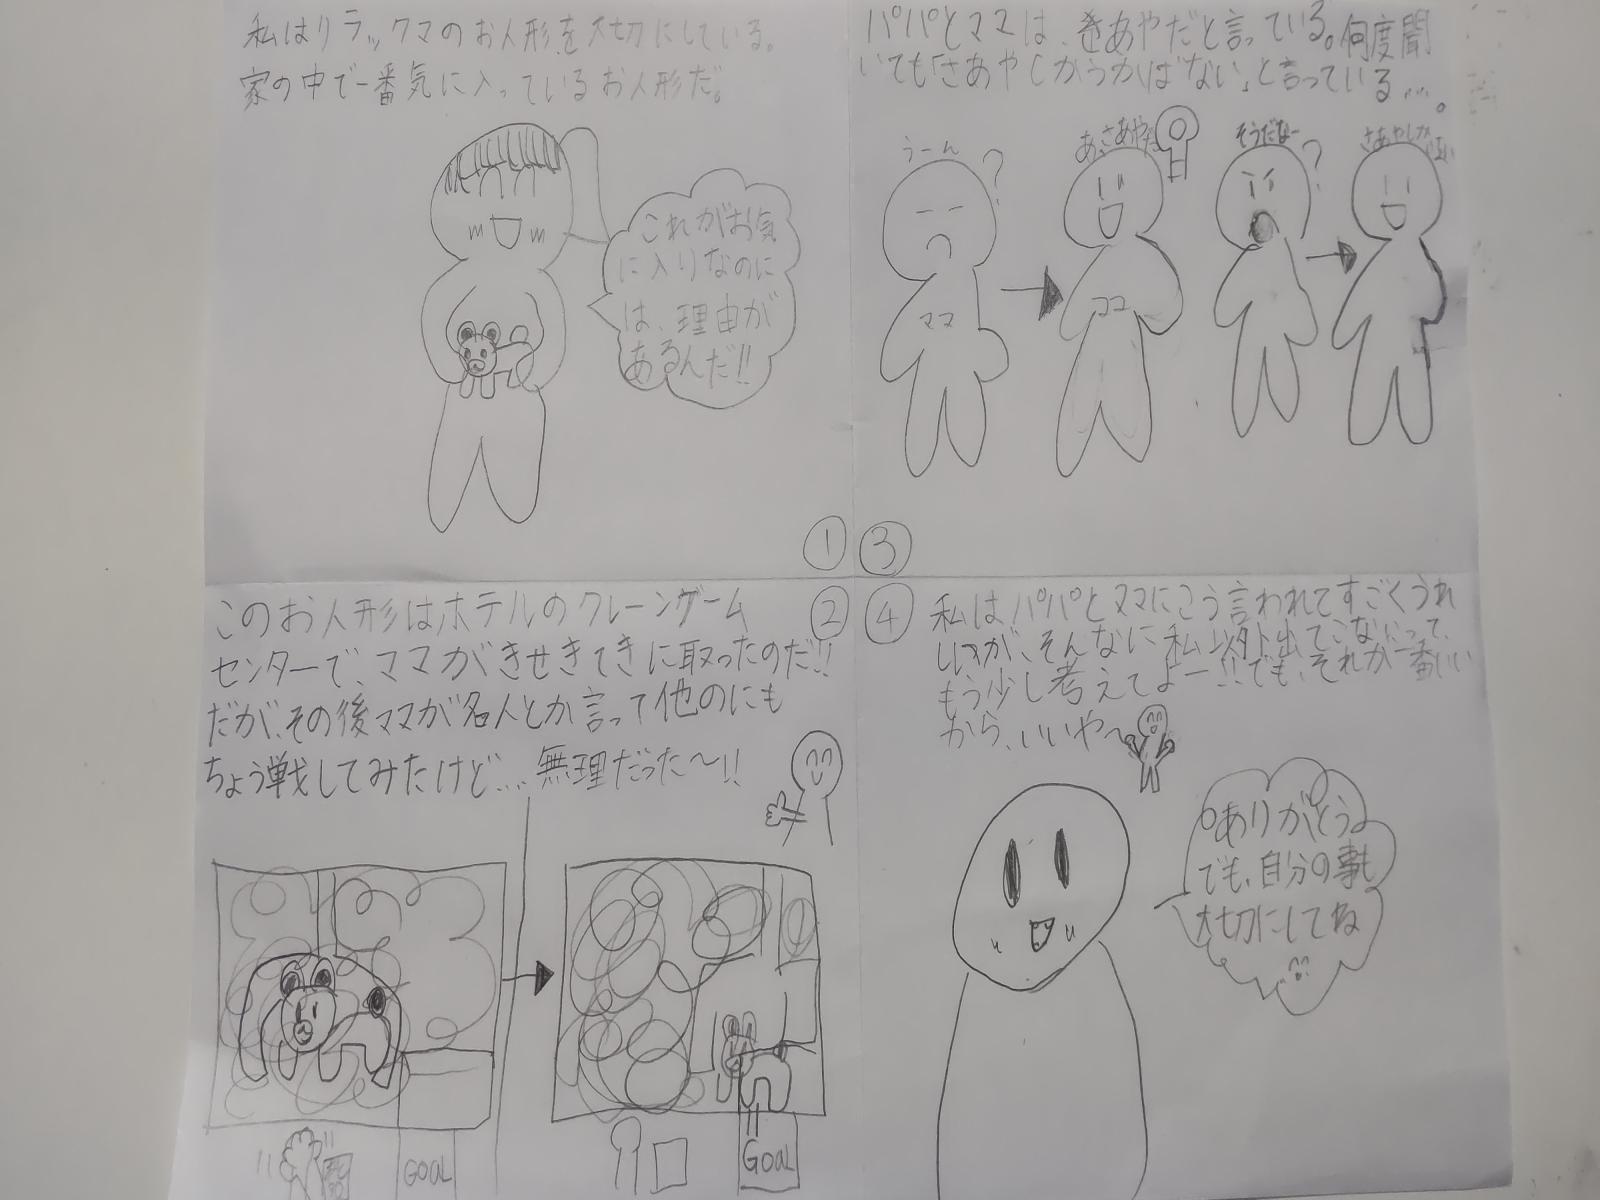 私はリラックマのお人形を大切にしている。
家の中で一番気に入っているお人形だ。
これがお気
に入りなのに
は、理由が
あるんだ!!
①
このお人形はホテルのクレーンゲーム
センターで、ママがきせきてきに取ったのだ!!
だが、その後ママが名人とか言って他のにも
ちょう戦してみたけど...無理だった〜!!
②
GOAL
GOAL
パパとママは、さあやだと言っている。何度聞
いても「さあやしかうかばない」と言っている....。
うーん
?
あ、さあやだ
そうだなー
?
さあやしか
ママ
ココ
③
④
私はパパとママにこう言われてすごくうれ
しいが、そんなに私以外出てこないって、
もう少し考えてよー!!でも、それが一番いい
から、いいや〜
ありがとう
でも、自分の事も
大切にしてね